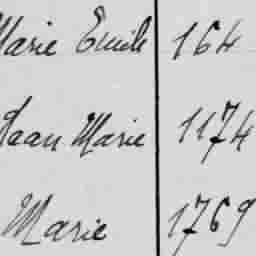 Marie Emile 164
Jean Marie 1174
Marie 1769